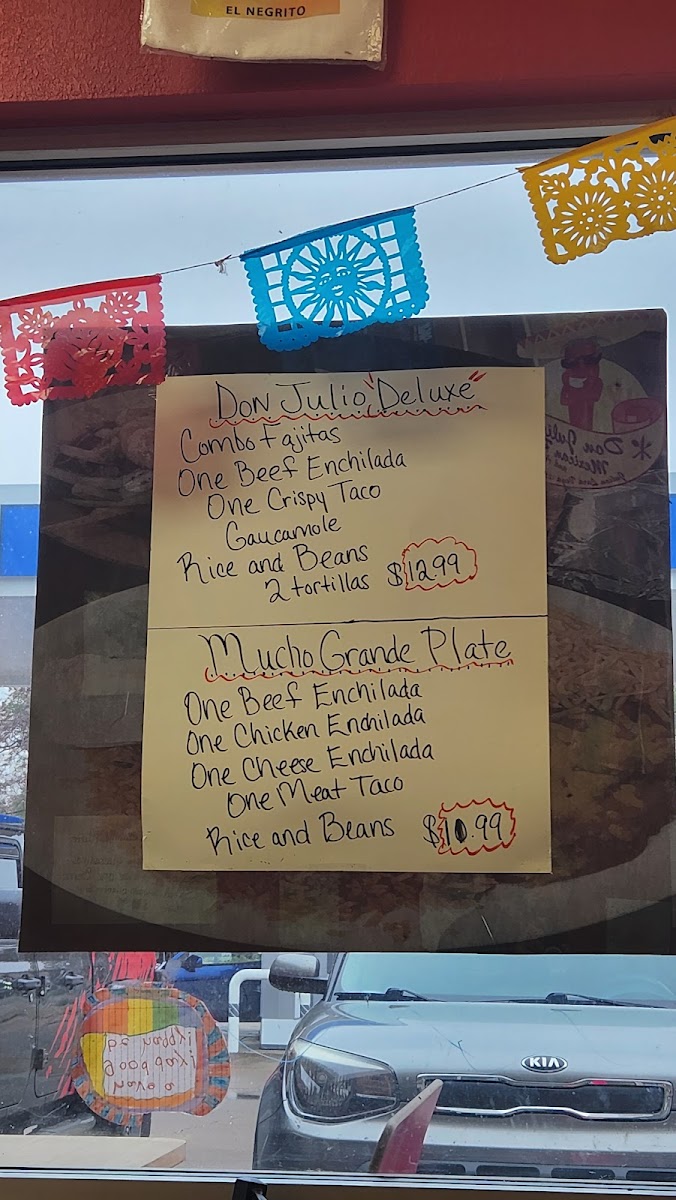 EL NEGRITO
Don Julio "Deluxe"
Combo Fajitas
One Beef Enchilada
One Crispy Taco
Gaucamole
Rice and Beans
2 tortillas $12.99
Mucho Grande Plate
One Beef Enchilada
One Chicken Enchilada
One Cheese Enchilada
One Meat Taco
Rice and Beans $10.99
Don Julio
Mexican
KIA